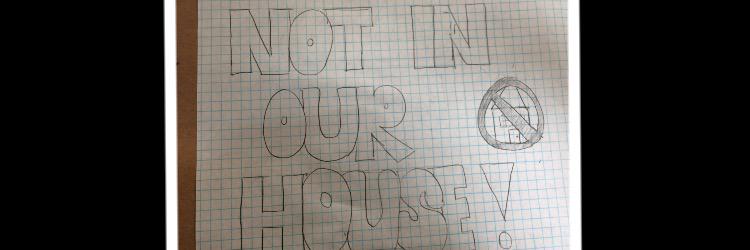 NOT IN
OUR
HOUSE!